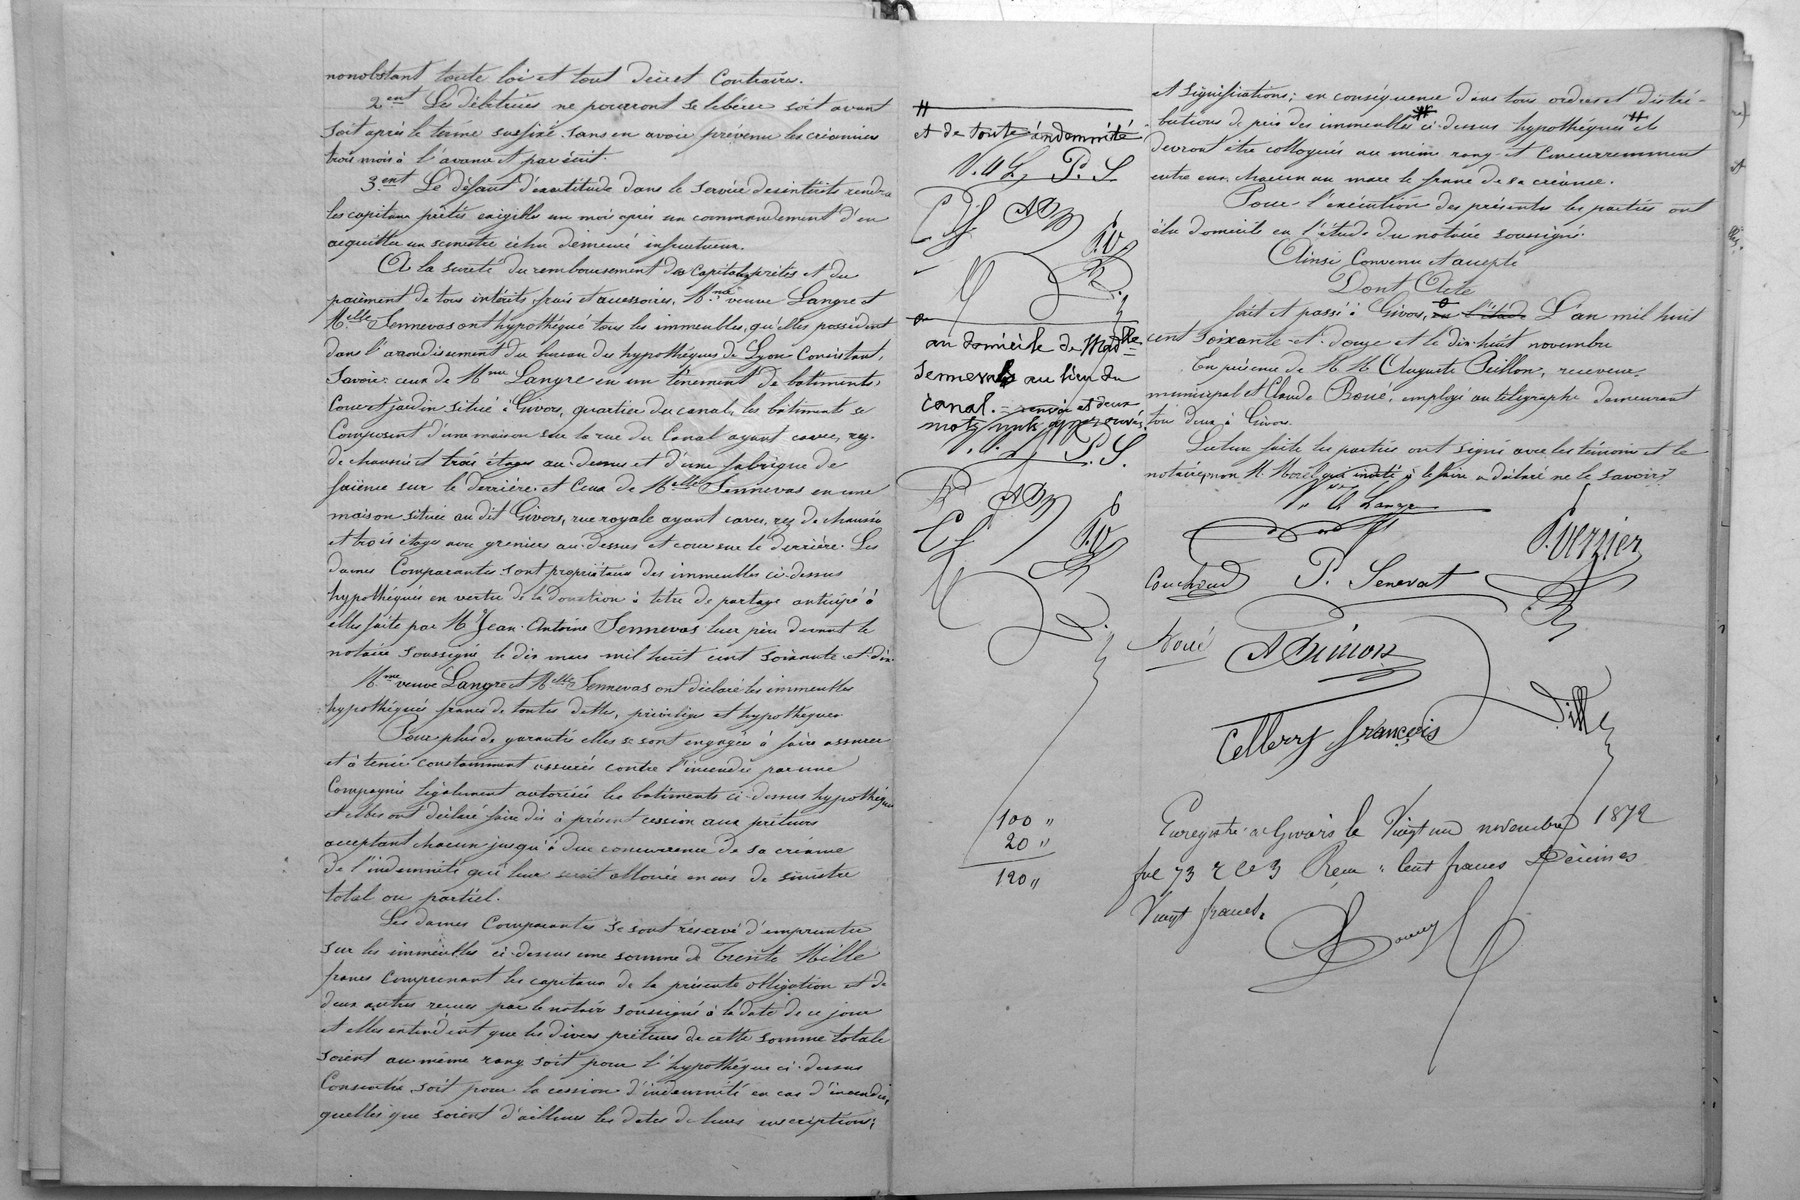 nonobstant toute loi et tout décret contraires.
2ent Les débitrices ne pourront se libérer soit avant
soit après le terme susfixé sans en avoir prévenu les créanciers
trois mois à l'avance et par écrit.
3ent Le défaut d'exactitude dans le service des intérêts rendra
les capitaux prêtés exigibles un mois après un commandement d'en
acquitter un semestre échu demeuré infructueux.
A la sureté du remboursement des capitaux prêtés et du
paiement de tous intérêts, frais et accessoires, Mme veuve Langre et
Melle Sennevas ont hypothéqué tous les immeubles, qu'elles possèdent
dans l'arrondissement du bureau des hypothèques de Lyon Consistant,
Savoir: ceux de Mme Langre en un tènement de bâtiments,
Cour et jardin situé à Givors, quartier du canal, les bâtiments se
Composent d'une maison sur la rue du Canal ayant caves, rez-
de chaussée et trois étages au-dessus et d'une fabrique de
faïence sur le derrière et Ceux de Melle Sennevas en une
maison située au dit Givors, rue royale ayant caves, rez de chaussée
et trois étages avec greniers au-dessus et cour sur le derrière. Les
dames Comparantes sont propriétaires des immeubles ci-dessus
hypothéqués en vertu de la donation à titre de partage anticipé à
elles faite par M Jean-Antoine Sennevas leur père devant le
notaire soussigné le dix mars mil huit cent soixante-et-dix.
Mme veuve Langre et Melle Sennevas ont déclaré les immeubles
hypothéqués francs de toutes dettes, privilèges et hypothèques
Pour plus de garantie elles se sont engagées à faire assurer
et à tenir constamment assurés contre l'incendie par une
Compagnie légalement autorisée les batiments ci-dessus hypothéqués
et elles ont déclaré faire dès à présent cession aux prêteurs
acceptant chacun jusqu'à due concurrence de sa créance
de l'indemnité qui leur serait allouée en cas de sinistre
total ou partiel.
Les dames Comparantes se sont réservé d'emprunter
sur les immeubles ci-dessus une somme de Trente Mille
francs Comprenant les capitaux de la présente obligation et de
deux autres reçues par le notaire soussigné à la date de ce jour
et elles entendent que les divers prêteurs de cette somme totale
soient au même rang soit pour l'hypothèque ci-dessus
Consentie, soit pour la cession d'indemnité en cas d'incendie,
quelles que soient d'ailleurs les dates de leurs inscriptions;
et de toute indemnité
V. A L P. S
C
AD
P.V
au domicile de Madlle
Sennevas au lieu du
canal. = renvoi et deux
mots nuls approuvés.
P. S.
AD
P.V
100 "
20 "
120 "
et significations; en conséquence dans tous ordres et distri-
butions de prix des immeubles ci-dessus hypothéqués ils
devront être colloqués au même rang et Concurremment
entre eux, chacun au marc le franc de sa créance.
Pour l'exécution des présentes les parties ont
élu domicile en l'étude du notaire soussigné.
Ainsi Convenu et accepté
Dont Acte
fait et passé à Givors, en l'étude L'an mil huit
cent soixante-et-douze et le dix-huit novembre
En présence de M M Auguste Peillon, receveur
municipal et Claude Boué, employé au télégraphe demeurant
tous deux à Givors.
Lecture faite les parties ont signé avec les témoins et le
notaire, non M. Morel qui invité à le faire a déclaré ne le savoir.
Vve A Langre
P. Verzier
Couchoud P. Senevat
Boué A Dimon
Cellery françois
Enregistré à Givors le Vingt un novembre 1872
fol 73 R Ce 3 Reçu: Cent francs Décimes
Vingt francs.